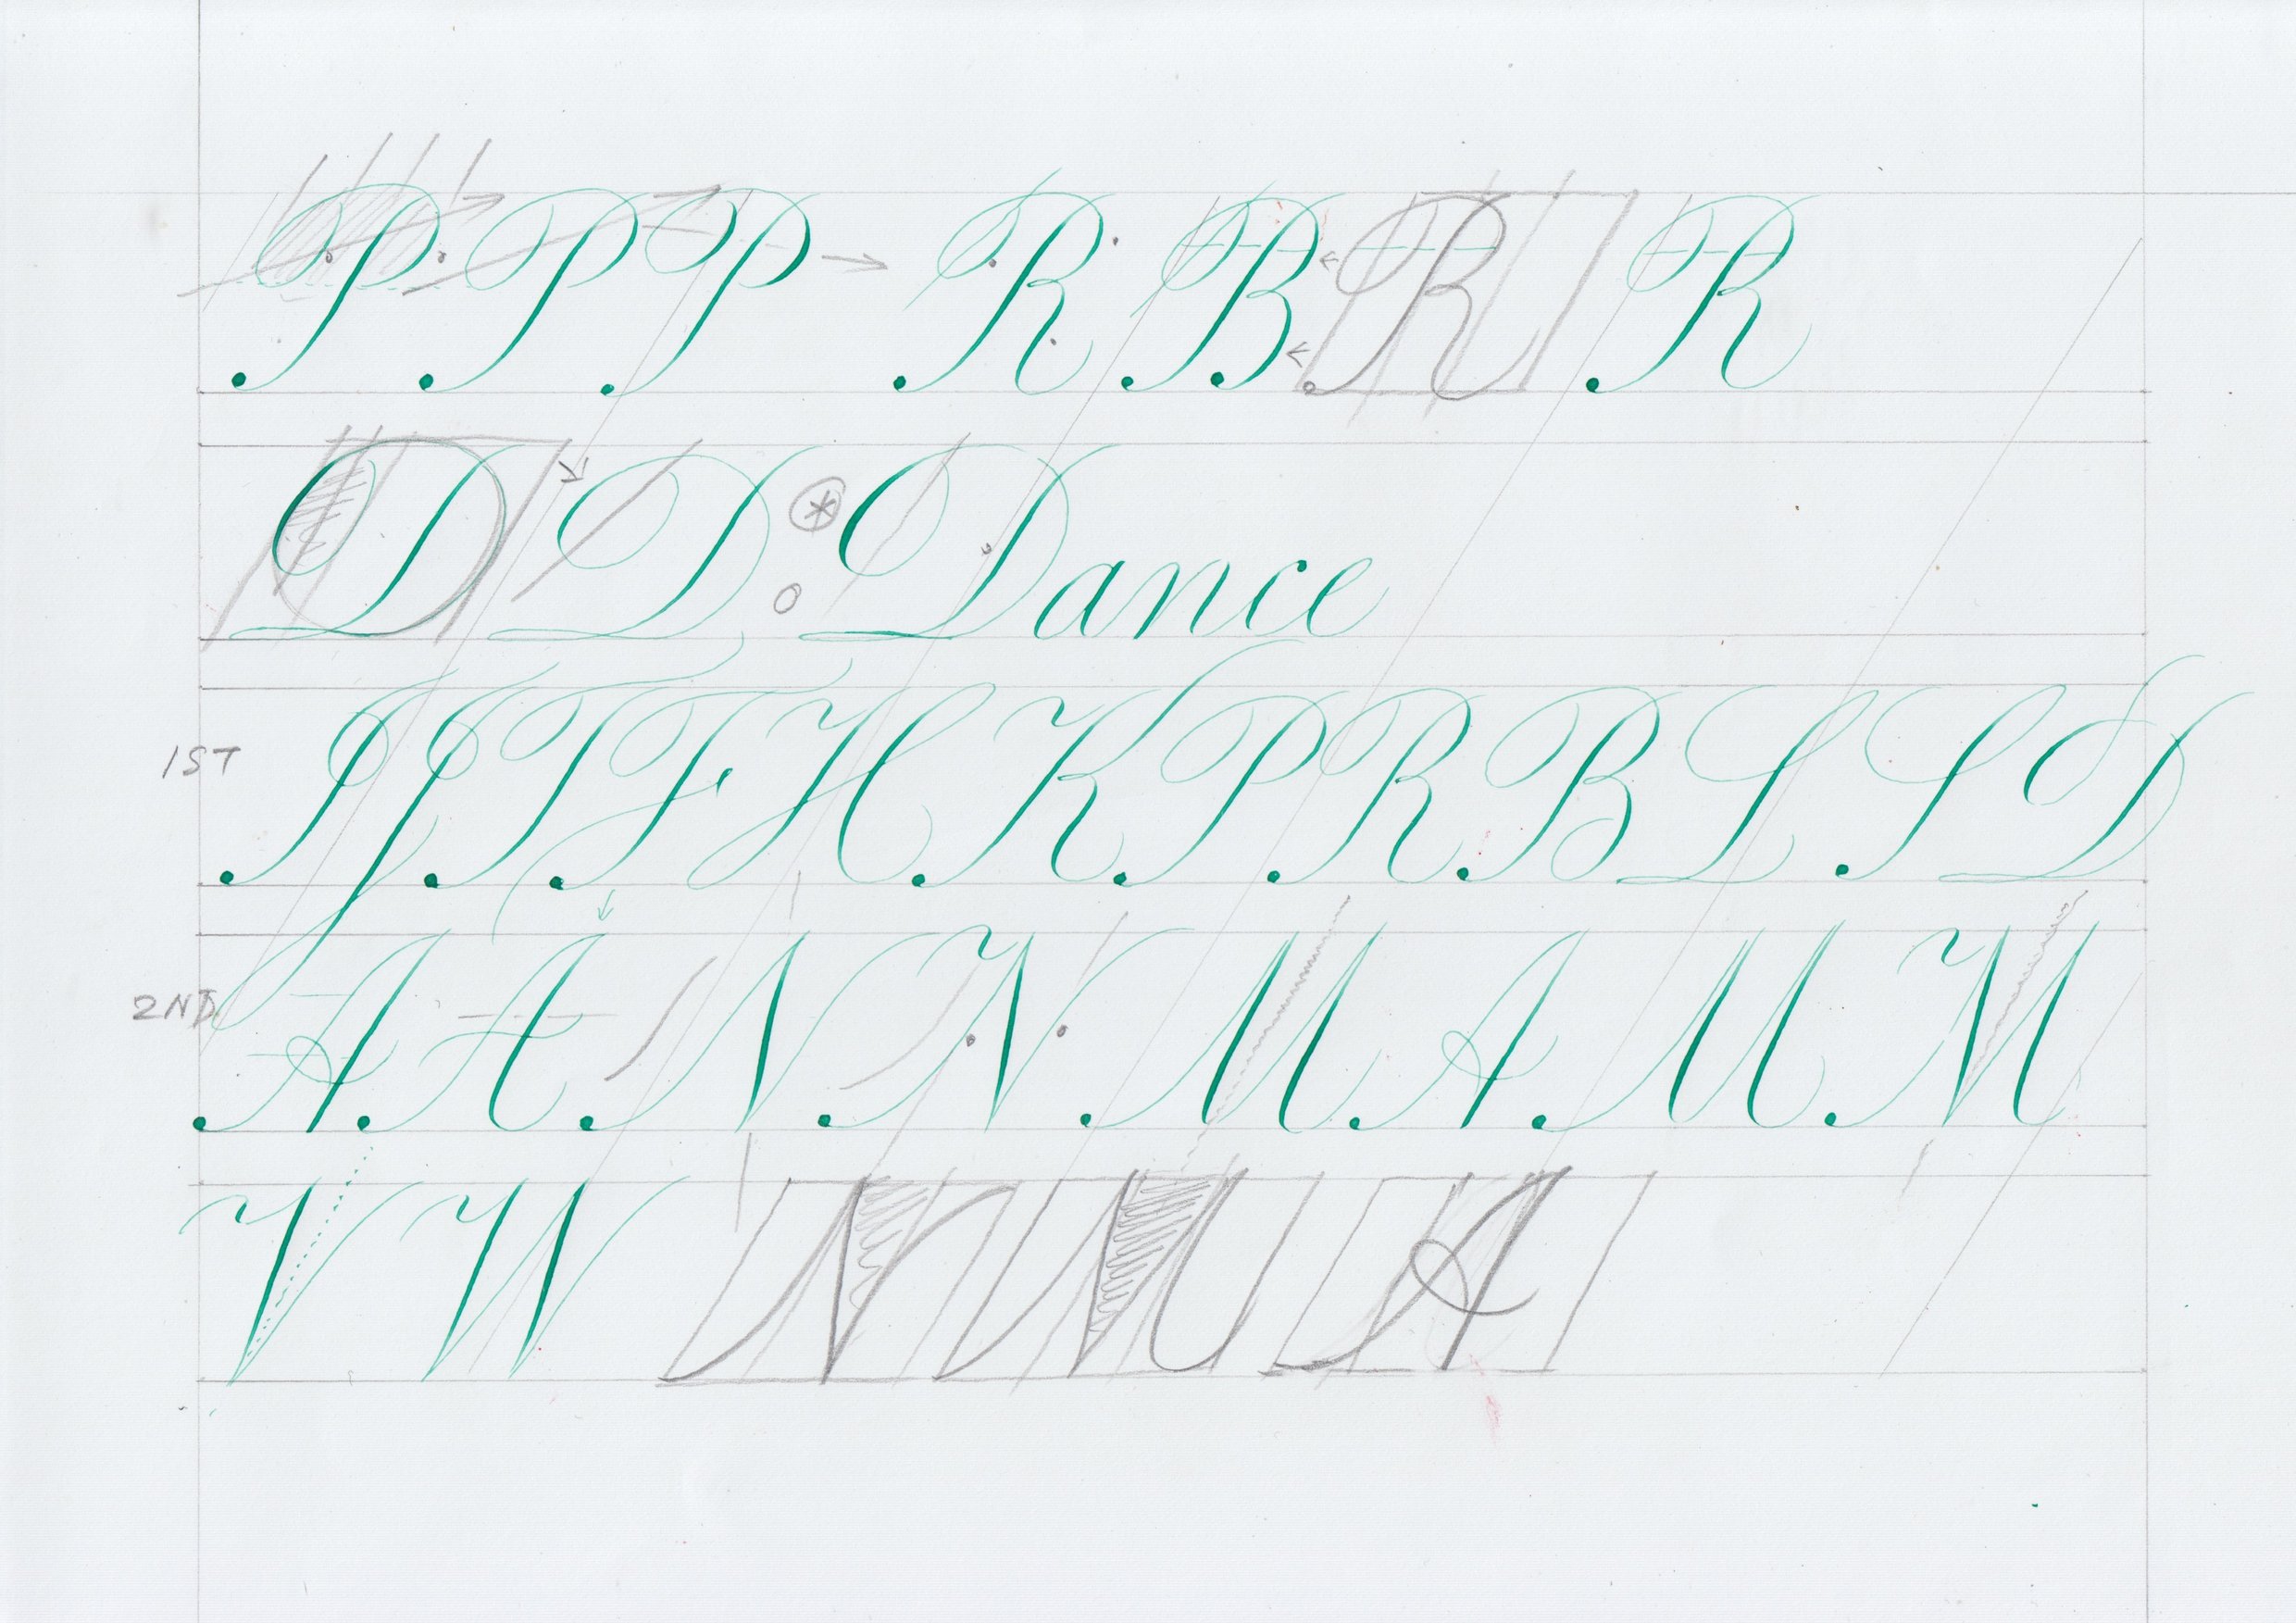 P P P R B R R
D D * Dance
1ST I J T F H K P R B L S D
2ND A A N N M A M M
V W N M A